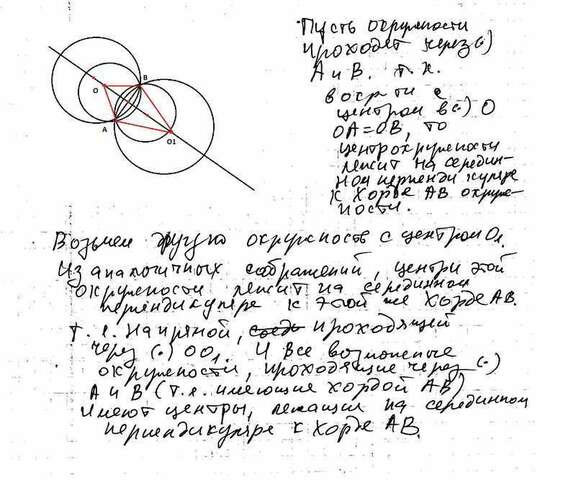 O
B
A
O1
Пусть окружности
проходят через (·)
A и B. т.к.
в окр-ти с
центром в (·) O
OA=OB, то
центр окружности
лежит на середин-
ном перпендикуляре
к хорде AB окруж-
ности.
Возьмем другую окружность с центром O1.
Из аналогичных соображений, центр этой
окружности лежит на серединном
перпендикуляре к этой же хорде AB.
т.е. на прямой, проходящей
через (·) OO1. И все возможные
окружности, проходящие через (·)
A и B (т.е. имеющие хордой AB)
имеют центры, лежащие на серединном
перпендикуляре к хорде AB.